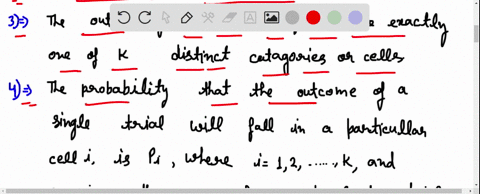 3)⇒ The out exactly
one of K distinct catagories or cells
4)⇒ The probability that the outcome of a
single trial will fall in a particullar
cell i, is Pi, where i= 1,2, ....., K, and